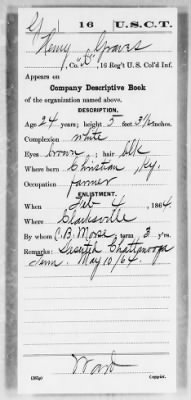 G | 16 | U.S.C.T.
Henry Graves
, Co. "C", 16 Reg't U. S. Col'd Inf.
Appears on
Company Descriptive Book
of the organization named above.
DESCRIPTION.
Age 24 years; height 5 feet 3½ inches.
Complexion white
Eyes brown; hair blk
Where born Christian, Ky.
Occupation farmer
ENLISTMENT.
When Feb 4, 1864.
Where Clarksville
By whom C. B. Morse; term 3 y'rs.
Remarks: Deserted Chattanooga
Tenn. May 10/64.
Ward
Copyist.